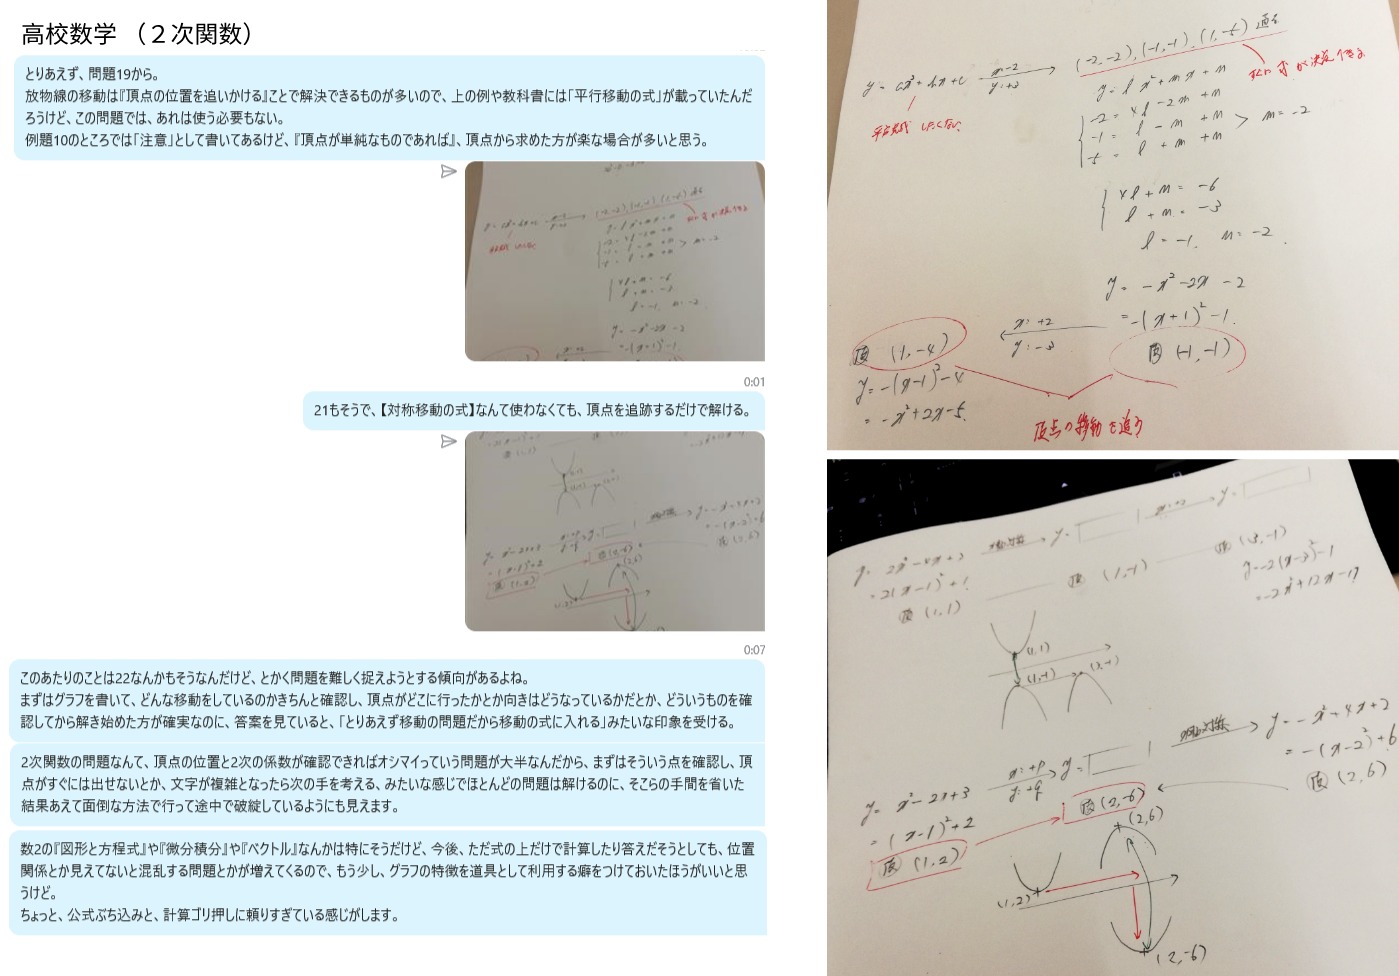 高校数学 （２次関数）
とりあえず、問題19から。
放物線の移動は『頂点の位置を追いかける』ことで解決できるものが多いので、上の例や教科書には「平行移動の式」が載っていたんだ
ろうけど、この問題では、あれは使う必要もない。
例題10のところでは「注意」として書いてあるけど、『頂点が単純なものであれば』、頂点から求めた方が楽な場合が多いと思う。
0:01
21もそうで、【対称移動の式】なんて使わなくても、頂点を追跡するだけで解ける。
0:07
このあたりのことは22なんかもそうなんだけど、とかく問題を難しく捉えようとする傾向があるよね。
まずはグラフを書いて、どんな移動をしているのかきちんと確認し、頂点がどこに行ったかとか向きはどうなっているかだとか、どういうものを確
認してから解き始めた方が確実なのに、答案を見ていると、「とりあえず移動の問題だから移動の式に入れる」みたいな印象を受ける。
2次関数の問題なんて、頂点の位置と2次の係数が確認できればオシマイっていう問題が大半なんだから、まずはそういう点を確認し、頂
点がすぐには出せないとか、文字が複雑となったら次の手を考える、みたいな感じでほとんどの問題は解けるのに、そこらの手間を省いた
結果あえて面倒な方法で行って途中で破綻しているようにも見えます。
数2の『図形と方程式』や『微分積分』や『ベクトル』なんかは特にそうだけど、今後、ただ式の上だけで計算したり答えだそうとしても、位置
関係とか見えてないと混乱する問題とかが増えてくるので、もう少し、グラフの特徴を道具として利用する癖をつけておいたほうがいいと思
うけど。
ちょっと、公式ぶち込みと、計算ゴリ押しに頼りすぎている感じがします。
(-2,-2), (-1,-1), (1,-5) 通る
y = ax²+bx+c
x:-2
y:+3
y = lx²+mx+n
-2 = 4l-2m+n
-1 = l-m+n
-5 = l+m+n
m = -2
4l+n = -6
l+n = -3
l = -1. n = -2
y = -x²-2x-2
= -(x+1)²-1.
頂 (-1,-1)
x:+2
y:-3
頂 (1,-4)
y = -(x-1)²-4
= -x²+2x-5.
頂点の移動を追う
y = 2x²-4x+3
= 2(x-1)²+1
頂 (1,1)
y =
頂 (1,-1)
x:+2
y =
頂 (3,-1)
y = -2(x-3)²-1
= -2x²+12x-19
(1,1)
(1,-1)
(3,-1)
y = x²-2x+3
= (x-1)²+2
頂 (1,2)
x:+p
y:+q
y =
頂 (2,-6)
y = -x²+4x+2
= -(x-2)²+6
頂 (2,6)
(2,6)
(1,2)
(2,-6)